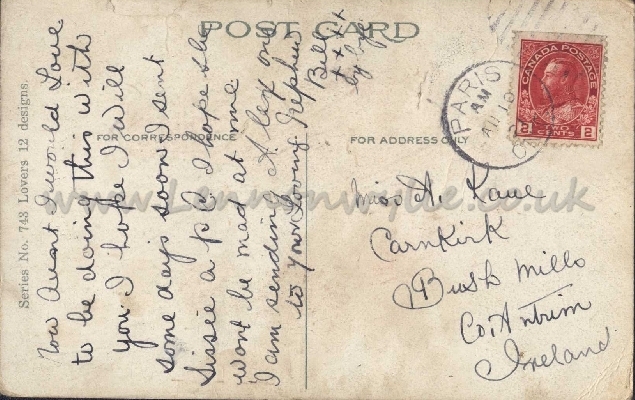 POST CARD
Series No. 743 Lovers 12 designs.
FOR CORRESPONDENCE
FOR ADDRESS ONLY
now Aunt I would Love
to be doing this with
you I hope I will
some days soon I sent
Sissie a pc I hope she
wont be mad at me
I am sending A
to your Loving Nephew
Bill
x x x
by by
PARIS
AM
CANADA POSTAGE
2 TWO CENTS 2
Miss A. Lane
Carnkirk
Bush Mills
Co. Antrim
Ireland
www.Lennonwylie.co.uk